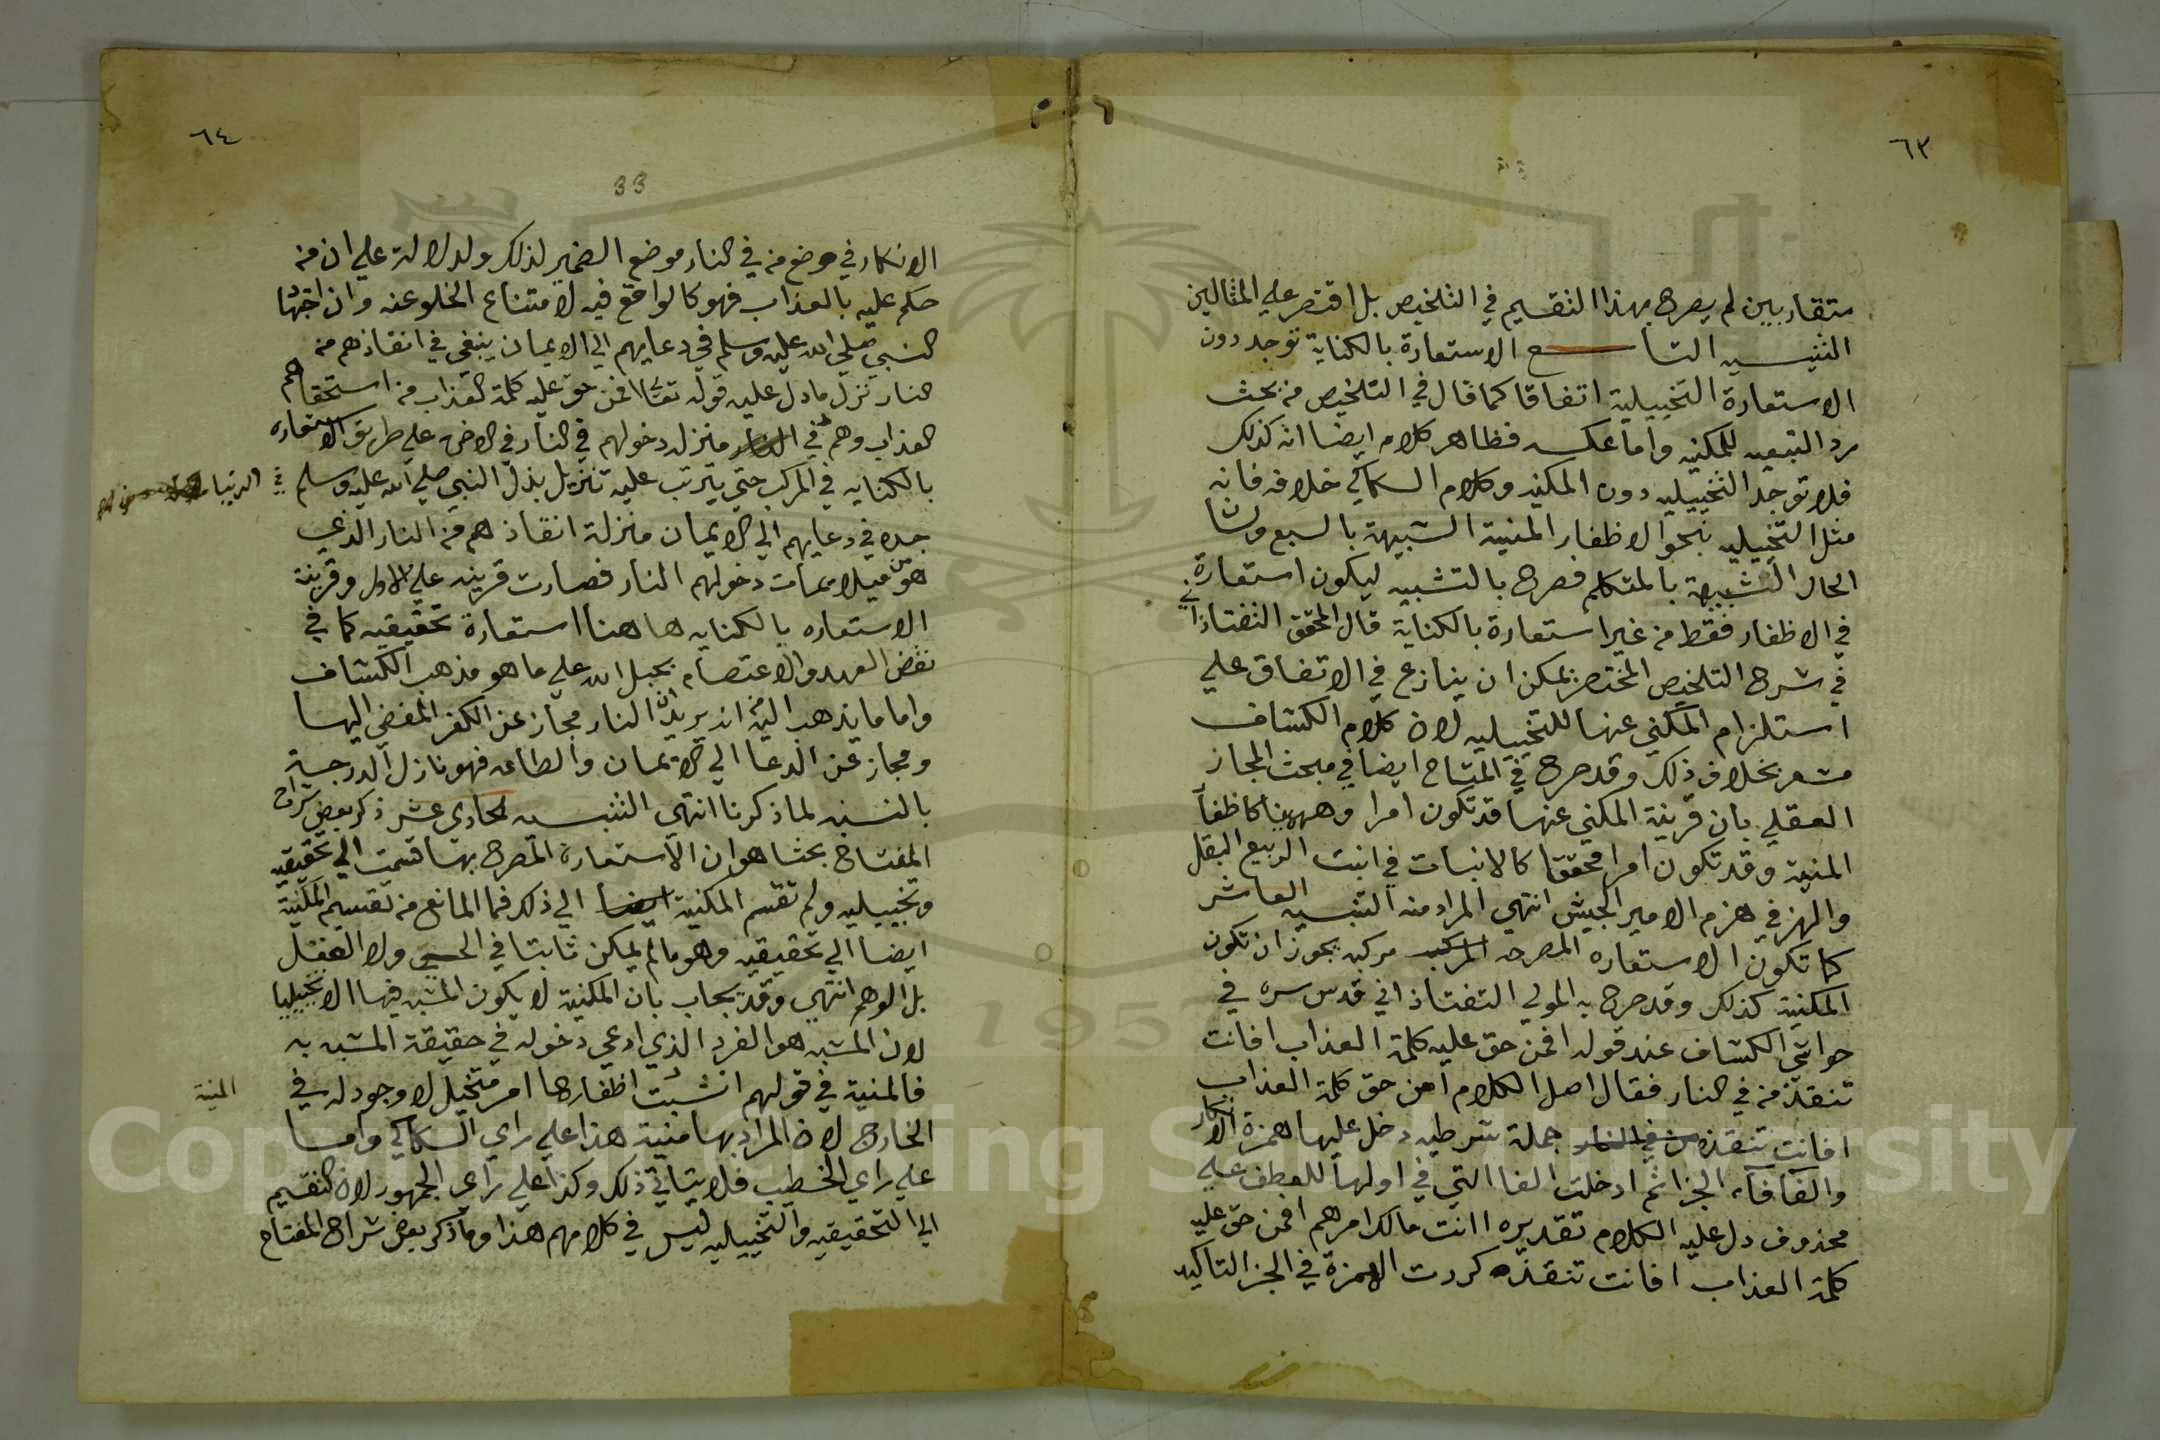 ٦٣
متقاربين لم يصرح بهذا التقسيم في التلخيص بل اقتصر علي المثالين
التنبيه التاسع الاستعارة بالكناية توجد دون
الاستعارة التخييلية اتفاقا كما قال في التلخيص من بحث
رد التبعيه للمكنيه واما عكسه فظاهر كلامه ايضا انه كذلك
فلا توجد التخييليه دون المكنيه وكلام السكاكي خلافه فانه
مثل التخييليه بنحو الاظفار المنية الشبيهة بالسبع ولسان
الحال الشبيهة بالمتكلم فصرح بالتشبيه ليكون استعارة
في الاظفار فقط من غير استعارة بالكناية قال المحقق التفتازاني
في شرح التلخيص المختصر يمكن ان ينازع في الاتفاق علي
استلزام المكني عنها للتخييليه لان كلام الكشاف
مشعر بخلاف ذلك وقد صرح في المفتاح ايضا في مبحث المجاز
العقلي بان قرينة المكني عنها قد تكون امرا وهميا كاظفار
المنية وقد تكون امرا محققا كالانبات في انبت الربيع البقل
والهزم في هزم الامير الجيش انتهي المراد منه التنبيه العاشر
كما تكون الاستعاره المصرحه المركبه مركبه يجوز ان تكون
المكنية كذلك وقد صرح به المولي التفتازاني قدس سره في
حواشي الكشاف عند قوله افمن حق عليه كلمة العذاب افانت
تنقذ من في النار فقال اصل الكلام امن حق كلمة العذاب
افانت تنقذه من في النار جملة شرطيه دخل عليها همزة الانكار
والفا فاء الجزا ثم ادخلت الفا التي في اولها للعطف علي
محذوف دل عليه الكلام تقديره اانت مالك امرهم افمن حق عليه
كلمة العذاب افانت تنقذه كررت الهمزة في الجزا لتاكيد
٦٤
33
الانكار في موضع من في النار موضع الضمير لذلك ولدلالة علي ان من
حكم عليه بالعذاب فهو كالواقع فيه لامتناع الخلو عنه وان اجتهاد
النبي صلي الله عليه وسلم في دعايهم الي الايمان ينبغي في انقاذهم من
النار نزل ما دل عليه قوله تعالي افمن حق عليه كلمة العذاب من استحقاقهم
العذاب وهم في النار منزلة دخولهم في النار في الاخره علي طريق الاستعاره
بالكنايه في المركب حتي يترتب عليه تنزيل بذل النبي صلي الله عليه وسلم
في الدنيا
جهده في دعايهم الي الايمان منزلة انقاذهم من النار الذي
هو من ملايمات دخولهم النار فصارت قرينه علي الاول وقرينة
الاستعاره بالكنايه هاهنا استعارة تحقيقيه كما في
نقض العهد والاعتصام بحبل الله علي ما هو مذهب الكشاف
واما ما يذهب اليه من انه يريد ان النار مجاز عن الكفر المفضي اليها
ومجاز عن الدعا الي الايمان والطاعه فهو نازل الدرجة
بالنسبه لما ذكرنا انتهي التنبيه الحادي عشر ذكر بعض شراح
المفتاح بحثا هو ان الاستعارة المصرح بها قسمت الي تحقيقيه
وتخييليه ولم تقسم المكنية ايضا الي ذلك فما المانع من تقسيم المكنية
ايضا الي تحقيقيه وهو ما لم يكن ثابتا في الحس ولا العقل
بل الوهم انتهي وقد يجاب بان المكنية لا يكون المشبه فيها الا تخييليا
لان المشبه هو الفرد الذي ادعي دخوله في حقيقة المشبه به
فالمنية في قولهم انشبت اظفارها امر متخيل لا وجود له في
المنية
الخارج لان المراد بها منية هذا علي راي السكاكي واما
علي راي الخطيب فلا يتاتي ذلك وكذا علي راي الجمهور لان التقسيم
الي التحقيقيه والتخييليه ليس في كلامهم هذا وما ذكر بعض شراح المفتاح
1957
Copyright © King Saud University